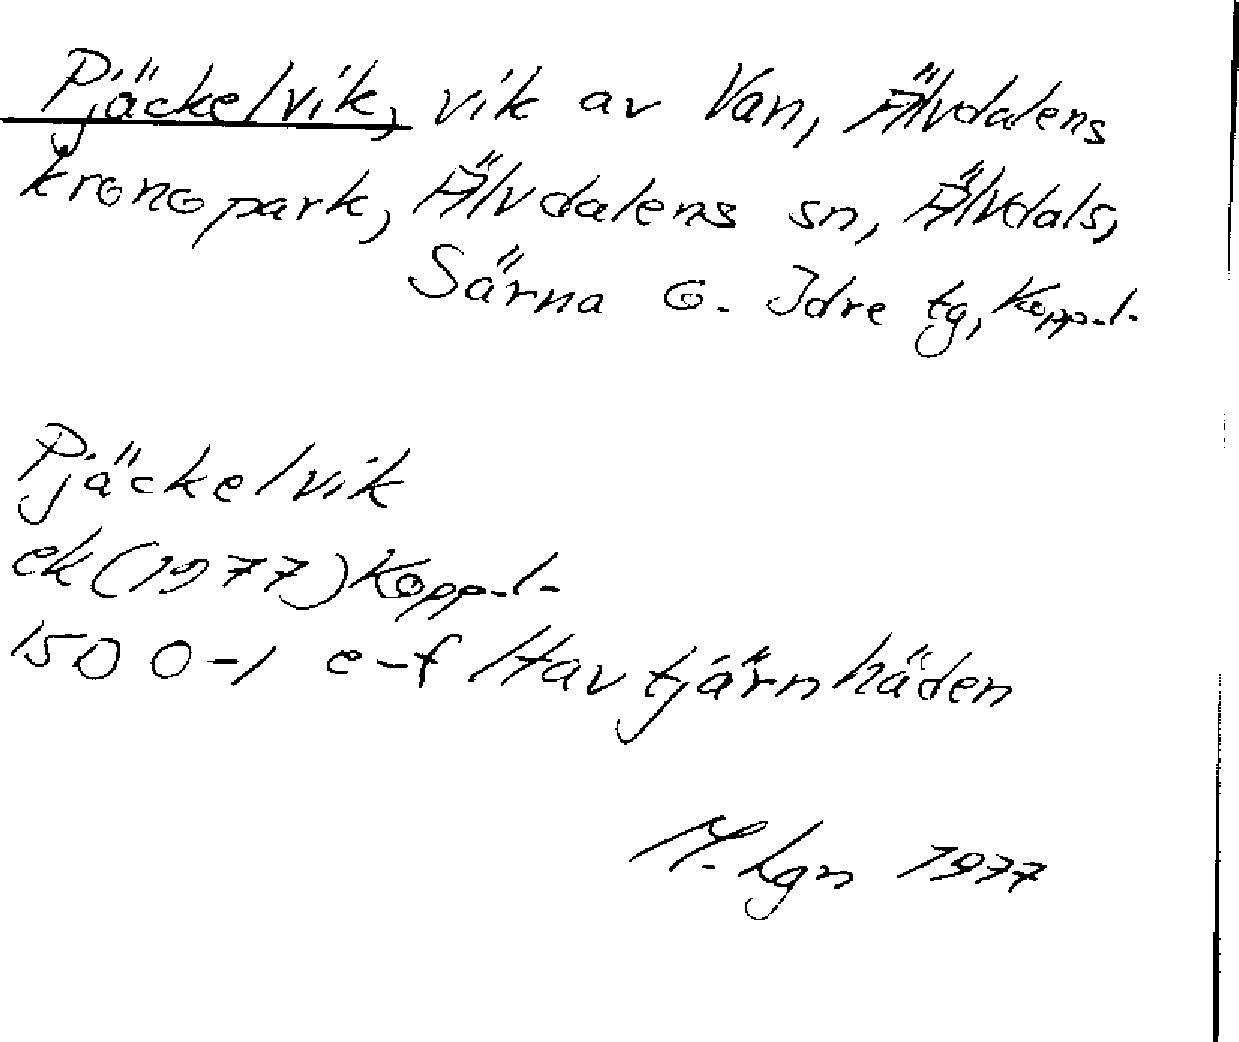 Pjäckelvik, vik av Van, Älvdalens
kronopark, Älvdalens sn, Älvdals,
Särna o. Idre tg, Kopp.l.
Pjäckelvik
ek (1977) Kopp.l.
15D 0-1 e-f Havtjärnhäden
M. Lgn 1977